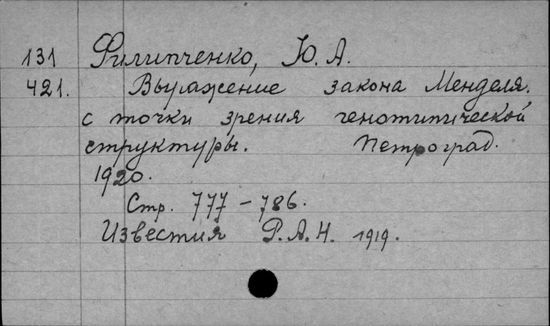 131 Филипченко, Ю. А.
421. Выражение закона Менделя.
с точки зрения генотипической
структуры. Петроград.
1920.
Стр. 777-786.
Известия Р.А.Н. 1919.